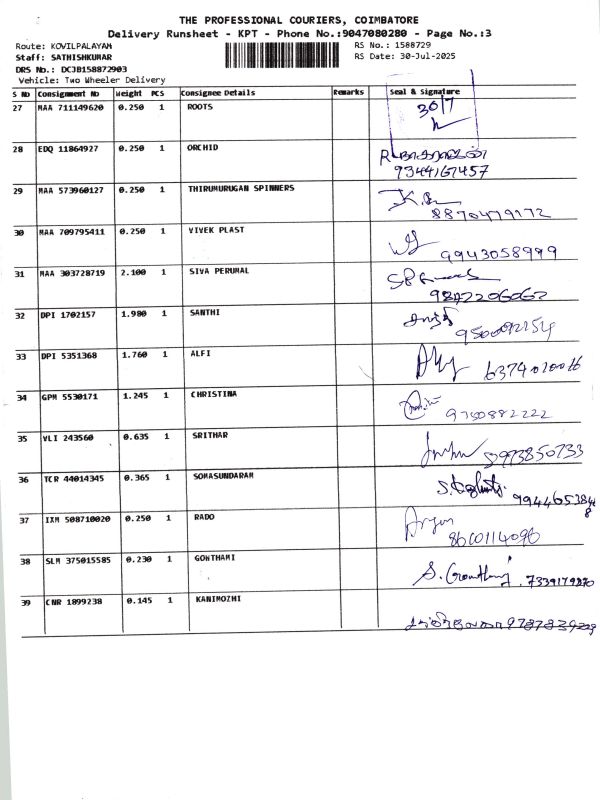 THE PROFESSIONAL COURIERS, COIMBATORE
Delivery Runsheet - KPT - Phone No.:9047080280 - Page No.:3
Route: KOVILPALAYAM RS No.: 1588729
Staff: SATHISHKUMAR RS Date: 30-Jul-2025
DRS No.: DCJB158872903
Vehicle: Two Wheeler Delivery
S No Consignment No Weight PCS Consignee Details Remarks Seal & Signature
27 MAA 711149620 0.250 1 ROOTS 30/7
28 EDQ 11864927 0.250 1 ORCHID
9344167457
29 MAA 573960127 0.250 1 THIRUMURUGAN SPINNERS
8870479172
30 MAA 709795411 0.250 1 VIVEK PLAST
9943058999
31 MAA 303728719 2.100 1 SIVA PERUMAL
9842206062
32 DPI 1702157 1.980 1 SANTHI
9500092154
33 DPI 5351368 1.760 1 ALFI
34 GPM 5530171 1.245 1 CHRISTINA
9750882222
35 VLI 243560 0.635 1 SRITHAR
8973850733
36 TCR 44014345 0.365 1 SOMASUNDARAM
37 IXM 508710020 0.250 1 RADO
8600114096
38 SLM 375015585 0.230 1 GOWTHAMI
S. Gowthami 7339179870
39 CNR 1899238 0.145 1 KANIMOZHI
9787839223